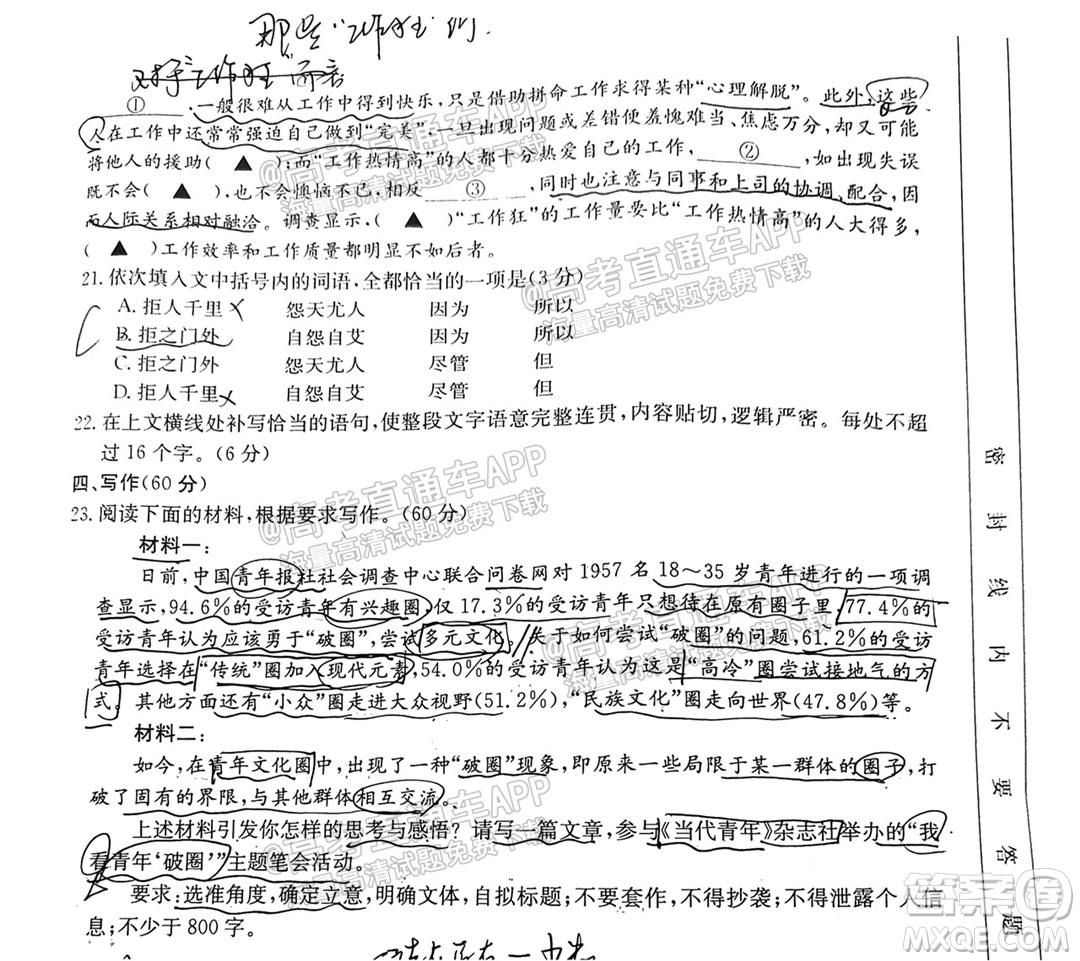 那是“工作狂”们.
对于“工作狂”而言
①,一般很难从工作中得到快乐,只是借助拼命工作求得某种“心理解脱”。此外,这些
人在工作中还常常强迫自己做到“完美”,一旦出现问题或差错便羞愧难当、焦虑万分,却又可能
将他人的援助( ▲ );而“工作热情高”的人都十分热爱自己的工作,②,如出现失误
既不会( ▲ ),也不会懊恼不已,相反③,同时也注意与同事和上司的协调、配合,因
而人际关系相对融洽。调查显示,( ▲ )“工作狂”的工作量要比“工作热情高”的人大得多,
( ▲ )工作效率和工作质量都明显不如后者。
21.依次填入文中括号内的词语,全都恰当的一项是(3分)
A.拒人千里 怨天尤人 因为 所以
B.拒之门外 自怨自艾 因为 所以
C.拒之门外 怨天尤人 尽管 但
D.拒人千里 自怨自艾 尽管 但
22.在上文横线处补写恰当的语句,使整段文字语意完整连贯,内容贴切,逻辑严密。每处不超
过16个字。(6分)
四、写作(60分)
23.阅读下面的材料,根据要求写作。(60分)
材料一:
日前,中国青年报社社会调查中心联合问卷网对1957名18～35岁青年进行的一项调
查显示,94.6%的受访青年有兴趣圈,仅17.3%的受访青年只想待在原有圈子里,77.4%的
受访青年认为应该勇于“破圈”,尝试多元文化。关于如何尝试“破圈”的问题,61.2%的受访
青年选择在“传统”圈加入现代元素,54.0%的受访青年认为这是“高冷”圈尝试接地气的方
式。其他方面还有“小众”圈走进大众视野(51.2%),“民族文化”圈走向世界(47.8%)等。
材料二:
如今,在青年文化圈中,出现了一种“破圈”现象,即原来一些局限于某一群体的圈子,打
破了固有的界限,与其他群体相互交流。
上述材料引发你怎样的思考与感悟?请写一篇文章,参与《当代青年》杂志社举办的“我
看青年‘破圈’”主题笔会活动。
要求:选准角度,确定立意,明确文体,自拟标题;不要套作,不得抄袭;不得泄露个人信
息;不少于800字。
密封线内不要答题
@高考直通车APP
海量高清试题免费下载
@高考直通车APP
海量高清试题免费下载
@高考直通车APP
海量高清试题免费下载
@高考直通车APP
海量高清试题免费下载
@高考直通车APP
海量高清试题免费下载
@高考直通车APP
海量高清试题免费下载
答案圈
MXQE.COM